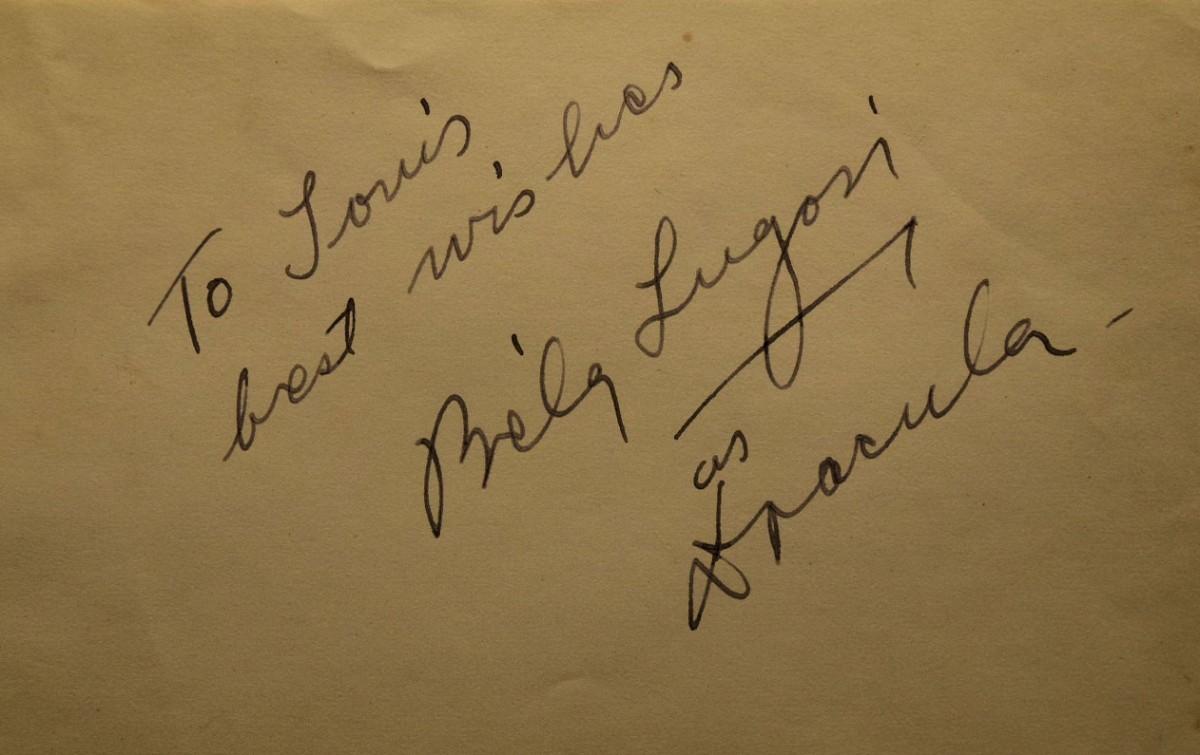 To Louis
best wishes
Béla Lugosi
as
Dracula -